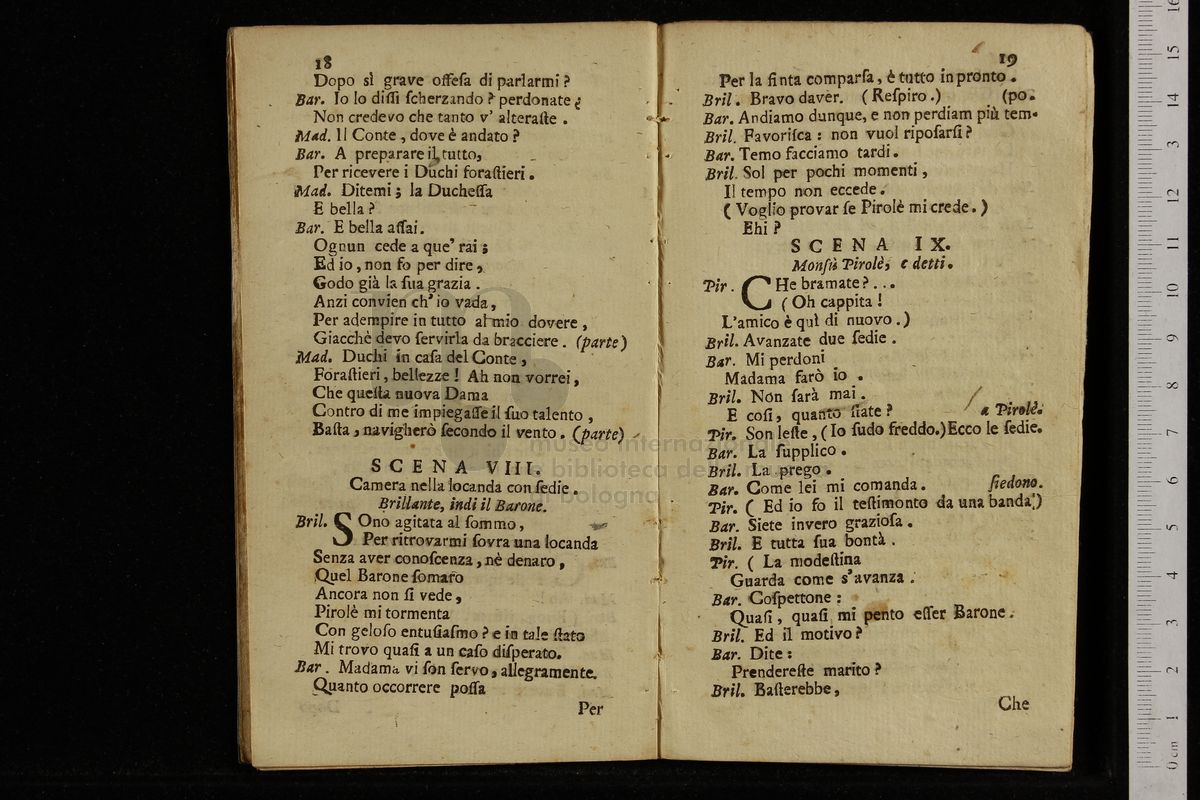 18
Dopo sì grave offeſa di parlarmi ?
Bar. Io lo diſſi ſcherzando ? perdonate ;
Non credevo che tanto v' alteraſte .
Mad. Il Conte , dove è andato ?
Bar. A preparare il tutto,
Per ricevere i Duchi foraſtieri .
Mad. Ditemi ; la Ducheſſa
E bella ?
Bar. E bella aſſai.
Ognun cede a que' rai ;
Ed io , non fo per dire ,
Godo già la ſua grazia .
Anzi convien ch' io vada ,
Per adempire in tutto al mio dovere ,
Giacchè devo ſervirla da bracciere . (parte)
Mad. Duchi in caſa del Conte ,
Foraſtieri , bellezze ! Ah non vorrei ,
Che queſta nuova Dama
Contro di me impiegaſſe il ſuo talento ,
Baſta , navigherò ſecondo il vento . (parte)
SCENA VIII.
Camera nella locanda con ſedie .
Brillante, indi il Barone.
Bril. SOno agitata al ſommo ,
Per ritrovarmi ſovra una locanda
Senza aver conoſcenza , nè denaro ,
Quel Barone ſomaro
Ancora non ſi vede ,
Pirolè mi tormenta
Con geloſo entuſiaſmo ? e in tale ſtato
Mi trovo quaſi a un caſo diſperato.
Bar . Madama vi ſon ſervo , allegramente.
Quanto occorrere poſſa
Per
19
Per la finta comparſa , è tutto in pronto .
Bril . Bravo davèr. ( Reſpiro .) (po.
Bar. Andiamo dunque, e non perdiam più tem-
Bril. Favoriſca : non vuol ripoſarſi ?
Bar. Temo facciamo tardi .
Bril. Sol per pochi momenti ,
Il tempo non eccede .
( Voglio provar ſe Pirolè mi crede . )
Ehi ?
SCENA IX.
Monſù Pirolè, e detti .
Pir . CHe bramate ? . . .
( Oh cappita !
L'amico è quì di nuovo . )
Bril. Avanzate due ſedie .
Bar. Mi perdoni
Madama farò io .
Bril. Non ſarà mai .
E coſi , quanto ſiate ? a Pirolè.
Pir. Son leſte , ( Io ſudo freddo.) Ecco le ſedie.
Bar. La ſupplico .
Bril. La prego .
Bar. Come lei mi comanda . ſiedono.
Pir. ( Ed io fo il teſtimonto da una banda !)
Bar. Siete invero grazioſa .
Bril. E tutta ſua bontà .
Pir. ( La modeſtina
Guarda come s'avanza .
Bar. Coſpettone :
Quaſi , quaſi mi pento eſſer Barone .
Bril. Ed il motivo ?
Bar. Dite :
Prendereſte marito ?
Bril. Baſterebbe ,
Che